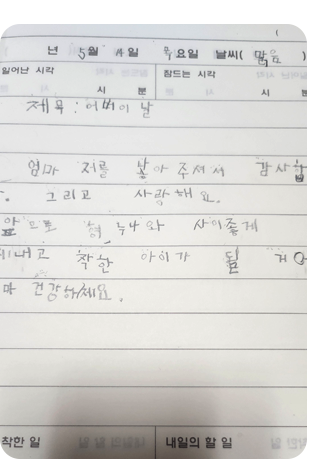 년 5월 4일 목요일 날씨( 맑음 )
일어난 시각 잠드는 시각
시 분 시
제목 : 어버이 날
엄마 저를 낳아 주셔서 감사합
. 그리고 사랑해요.
앞으로 형 누나와 사이좋게
지내고 착한 아이가 될 거
마 건강하세요.
착한 일 내일의 할 일